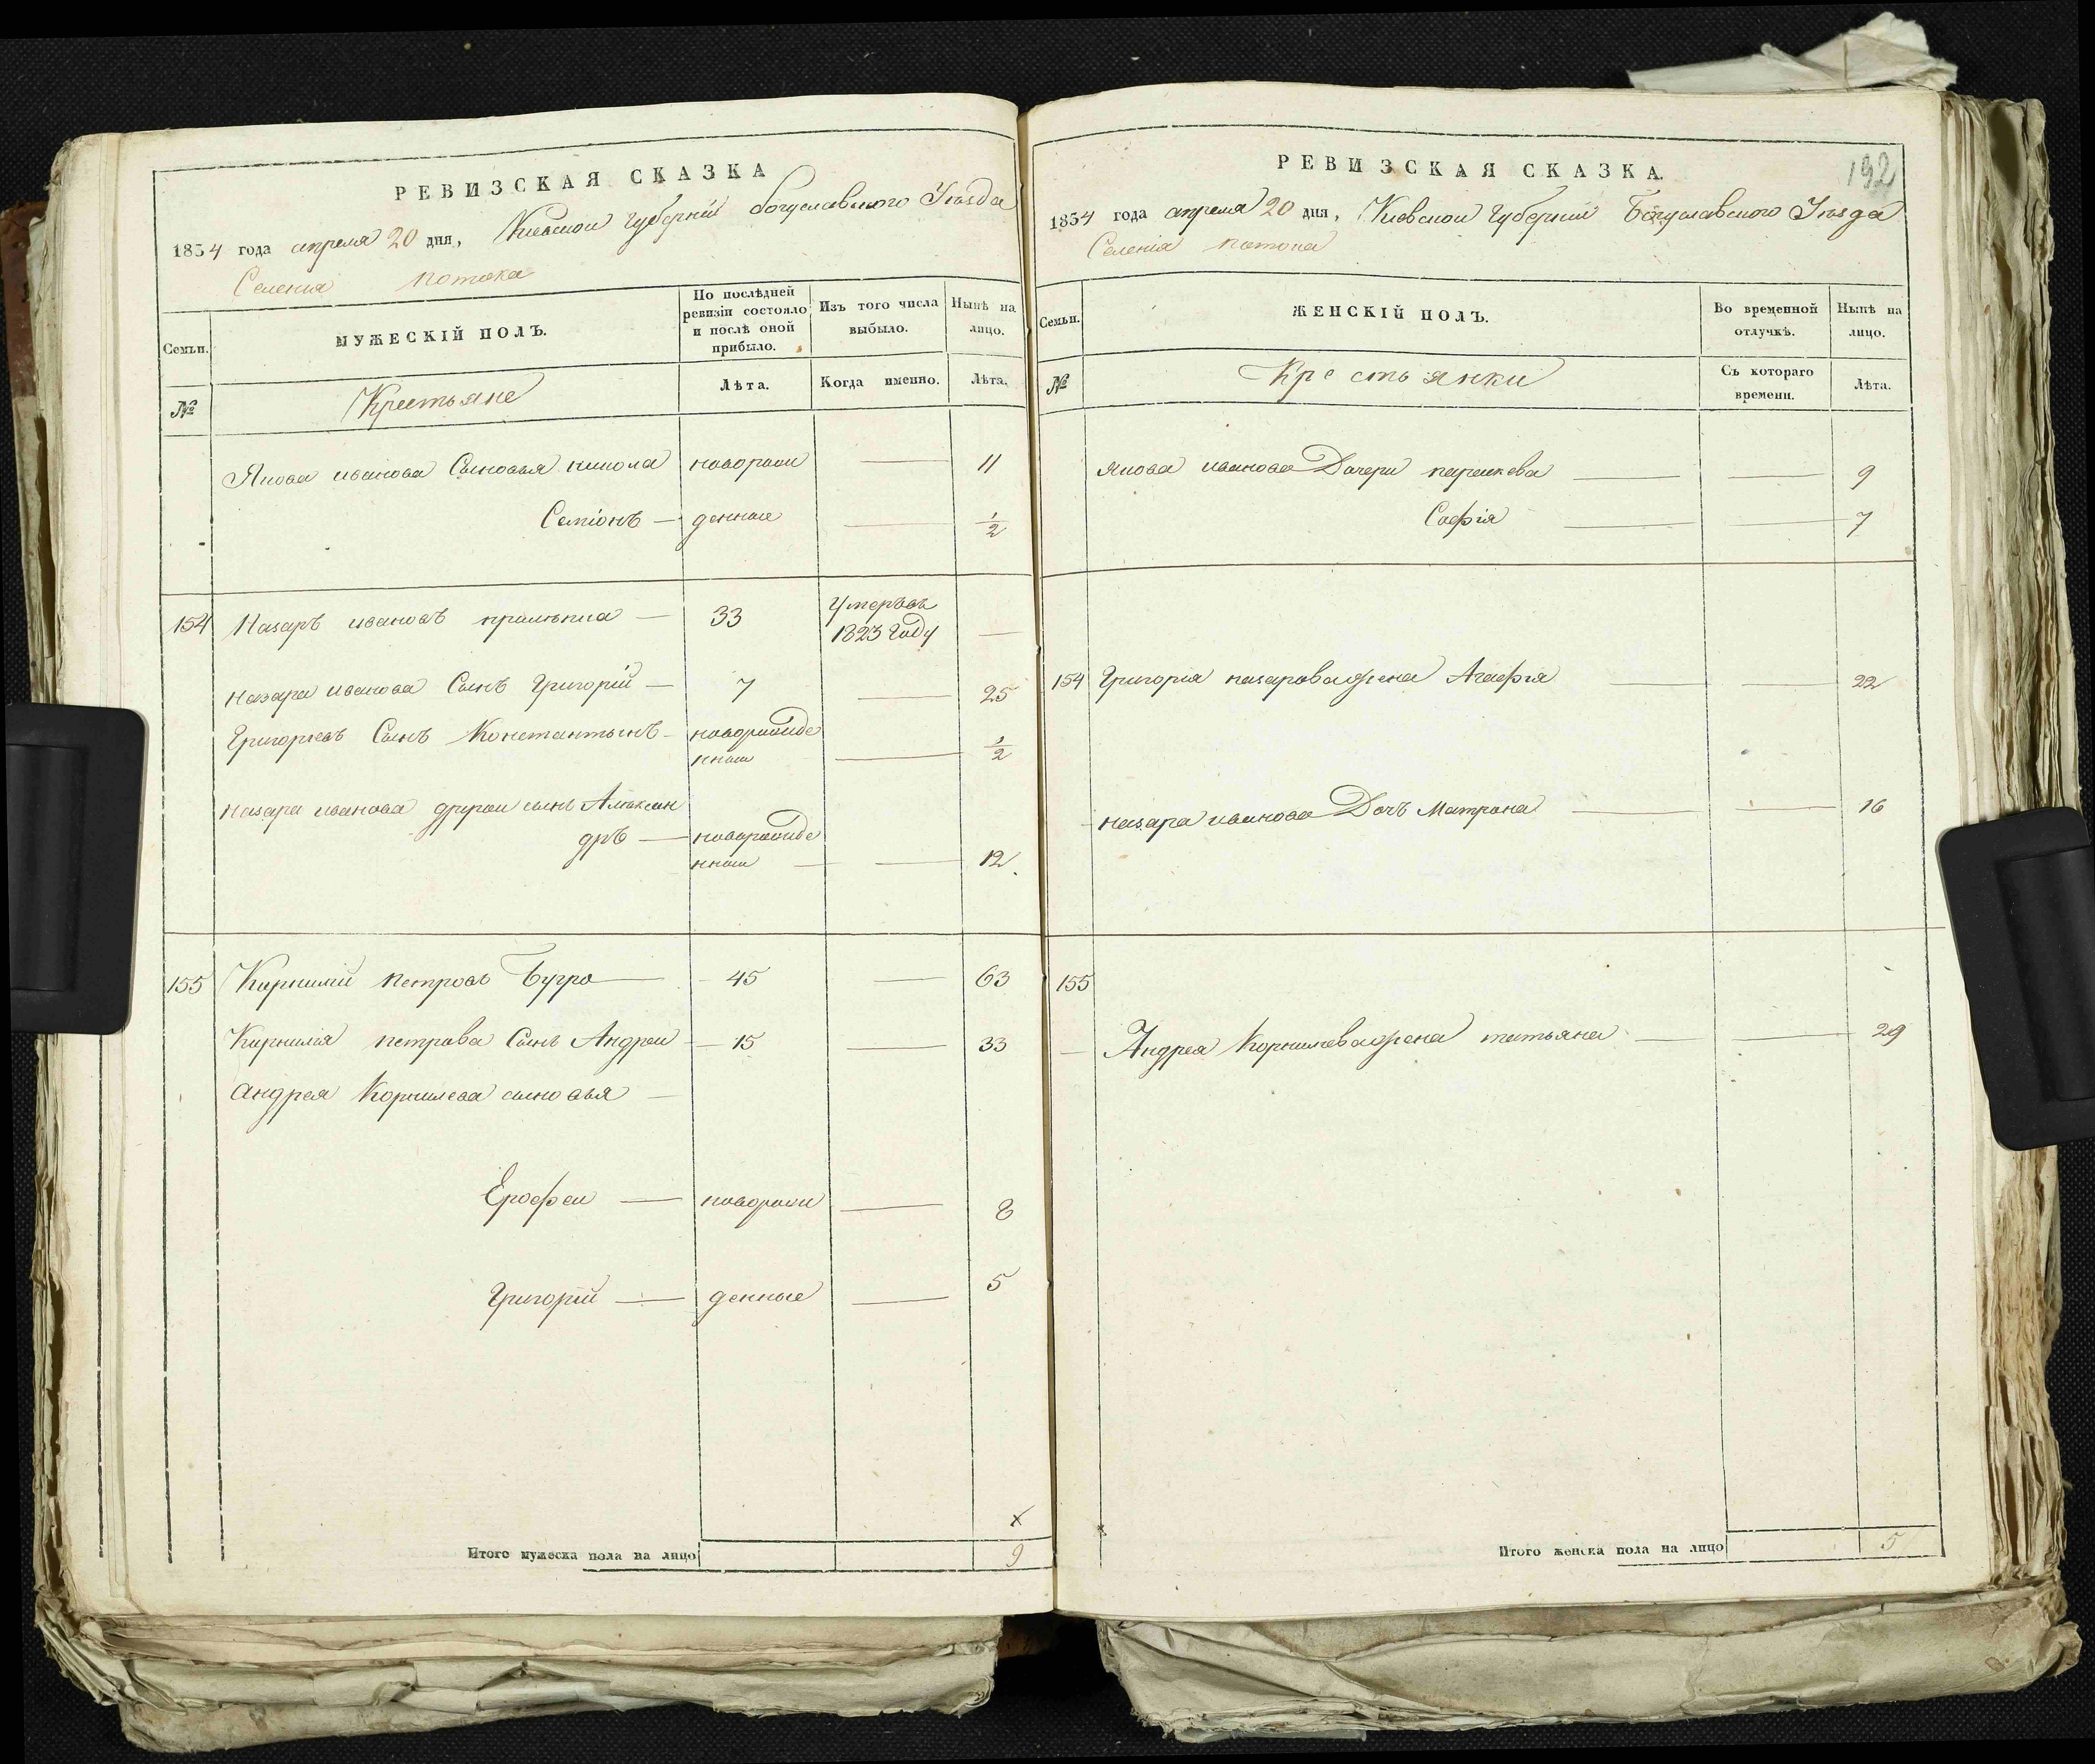 РЕВИЗСКАЯ СКАЗКА
1834 года апреля 20 дня, Киевской губернии богуславского Уѣзда
Селения потока
Семьи.
МУЖЕСКІЙ ПОЛЪ.
По послѣдней ревизіи состояло и послѣ оной прибыло.
Изъ того числа выбыло.
Нынѣ на лицо.
№
Крестьяне
Лѣта.
Когда именно.
Лѣта.
Якова иванова Сыновья никола новорож 11
Семіонъ — денные 1/2
154 Назаръ ивановъ — 33 Умеръ въ 1823 Году —
назара иванова Сынъ Григорій — 7 25
Григорievъ Сынъ Константынъ — новорожде
нный 1/2
назара иванова другои сынъ Алѣксан
дръ — новорожде
нный 12
155 Корнилій петровъ Бугра 45 63
Корнилія петрова Сынъ Андреи — 15 33
андрея Корнилева сыновья —
Ерофеи — новорож 8
Григорій — денные 5
Итого мужеска пола на лицо 9
РЕВИЗСКАЯ СКАЗКА.
192
1834 года апреля 20 дня, Киевской Губерніи Богуславского Уѣзда
Селенія потока
Семьи.
ЖЕНСКІЙ ПОЛЪ.
Во временной отлучкѣ.
Нынѣ на лицо.
№
Крестьянки
Съ котораго времени.
Лѣта.
якова иванова Дочери параскева 9
Софія 7
154 Григорія назарова жена Агафія 22
назара иванова Дочъ Матрона 16
155
Андрея Корнилева жена татьяна 29
Итого женска пола на лицо 5